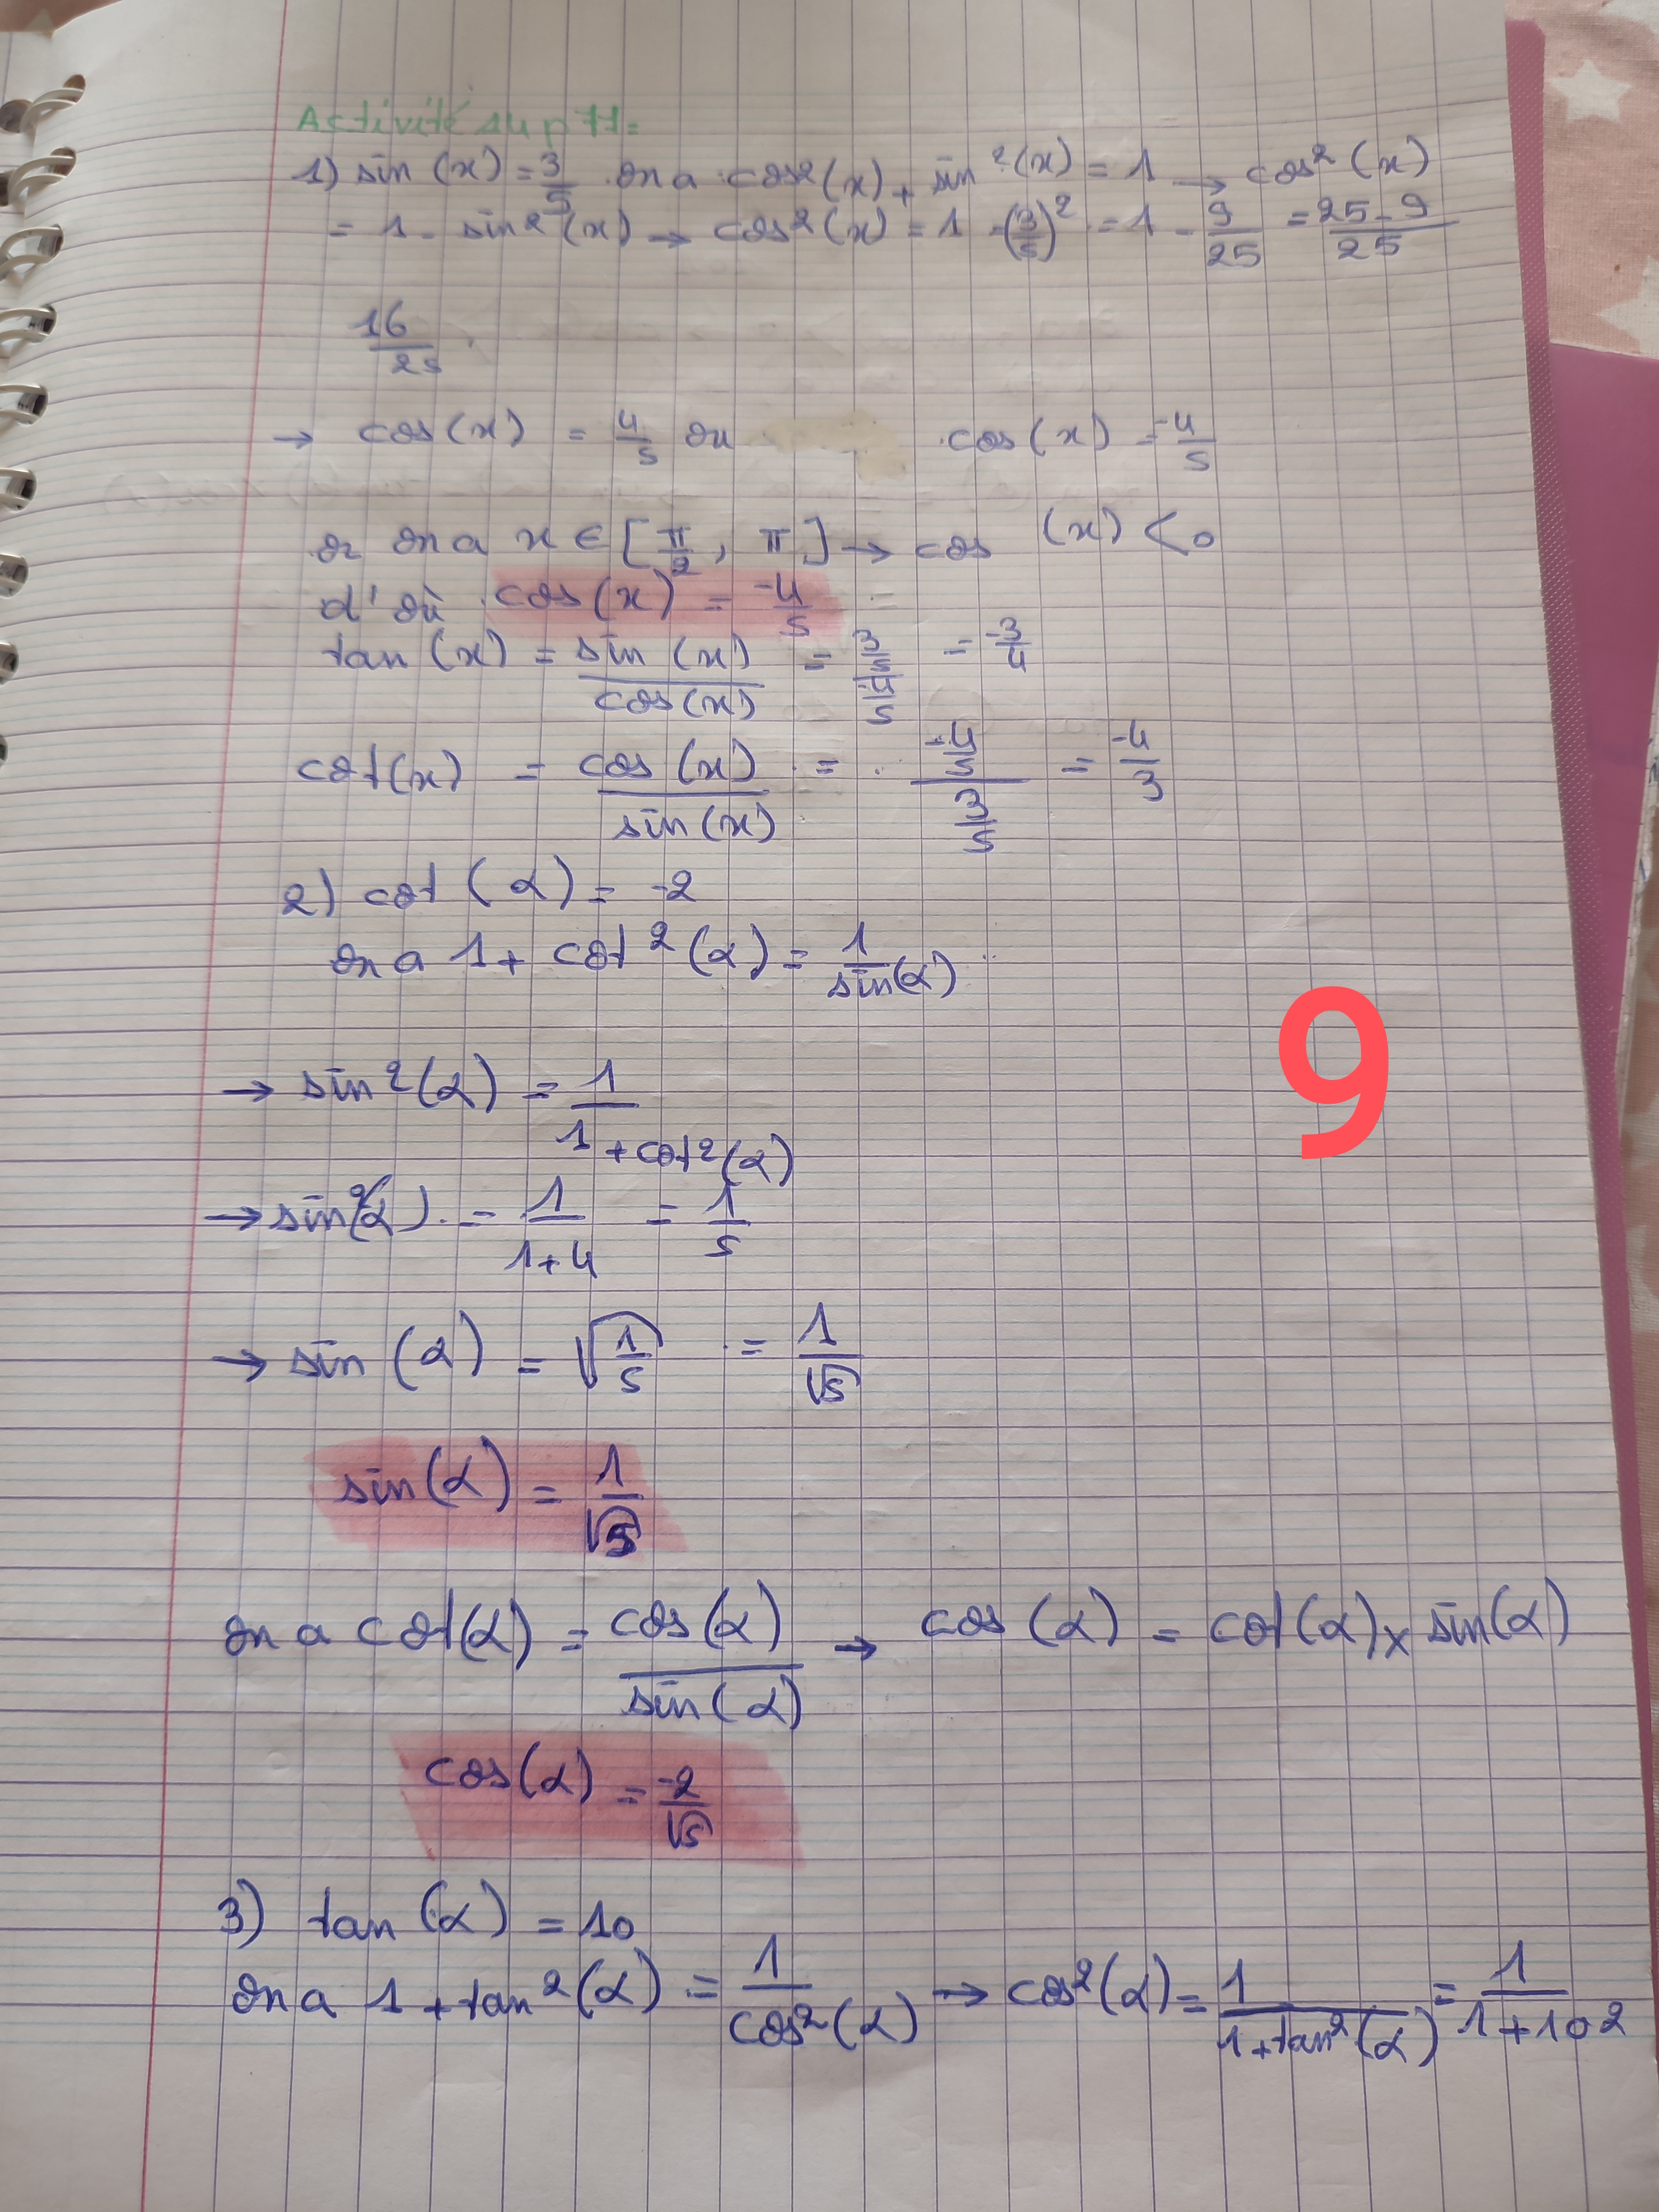 Activité 14 p 77:
1) sin (x) = 3/5 on a cos²(x) + sin²(x) = 1 → cos²(x)
= 1 - sin²(x) → cos²(x) = 1 - (3/5)² = 1 - 9/25 = 25-9/25
16/25
→ cos(x) = 4/5 ou cos(x) = -4/5
or on a x ∈ [π/2, π] → cos (x) < 0
d'où cos(x) = -4/5
tan (x) = sin (x)/cos(x) = 3/5/-4/5 = -3/4
cot(x) = cos (x)/sin(x) = -4/5/3/5 = -4/3
2) cot (α) = -2
on a 1 + cot²(α) = 1/sin(α)
→ sin²(α) = 1/1 + cot²(α)
→ sin²(α) = 1/1+4 = 1/5
→ sin (α) = √1/5 = 1/√5
sin(α) = 1/√5
on a cot(α) = cos(α)/sin(α) → cos (α) = cot(α) x sin(α)
cos(α) = -2/√5
3) tan (α) = 10
on a 1 + tan²(α) = 1/cos²(α) → cos²(α) = 1/1+tan²(α) = 1/1+10²
9